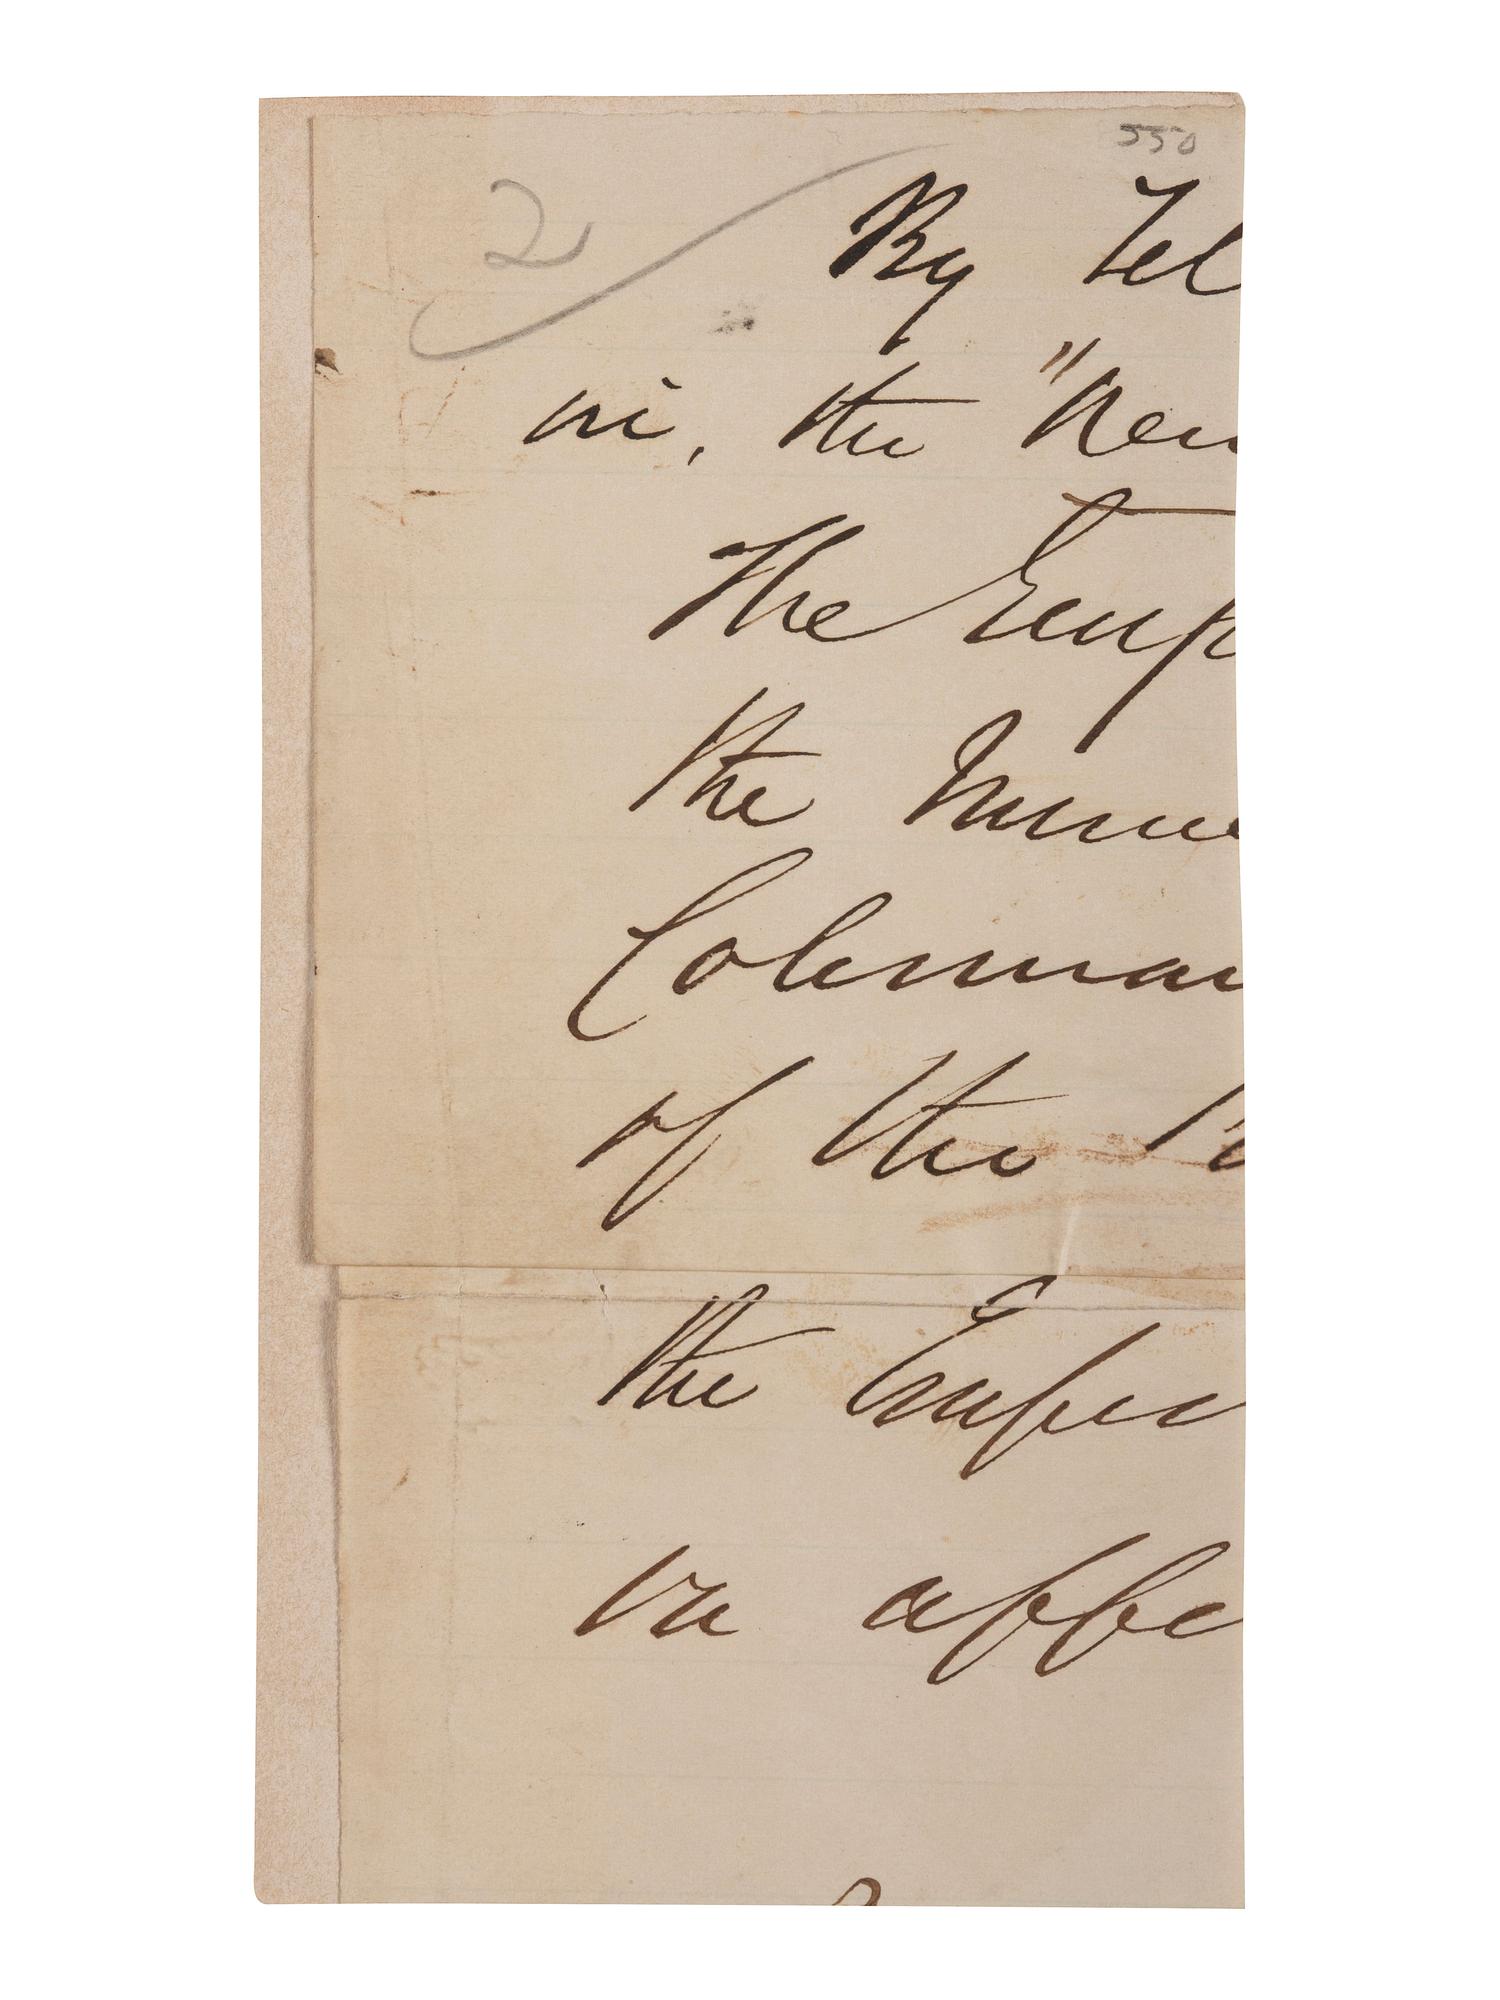 550
2
By Tel
in, the "New
The Emp
the
Coleman
of the
the Emper
in appe